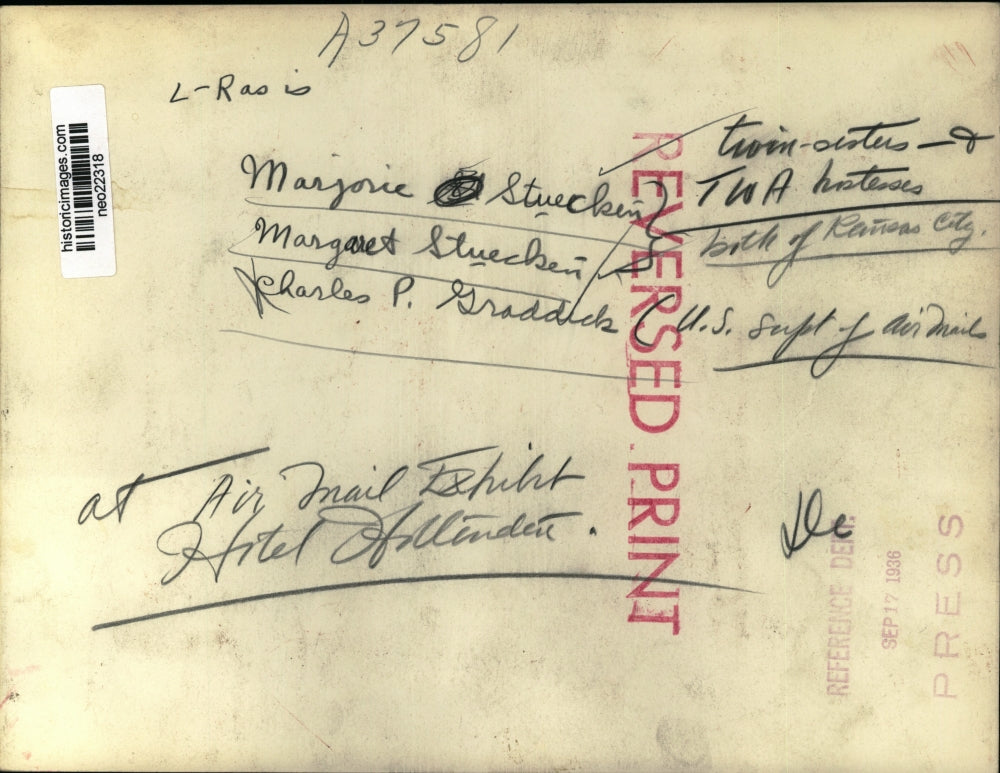 A37581
L-R as is
historicimages.com
neo22318
Marjorie Stuecken
Margaret Stuecken
twin-sisters - &
TWA hostesses
both of Kansas City.
Charles P. Graddick (U.S. supt of air mails
at Air Mail Exhibit
Hotel Hollenden.
REVERSED PRINT
REFERENCE DEPT.
SEP 17 1936
PRESS